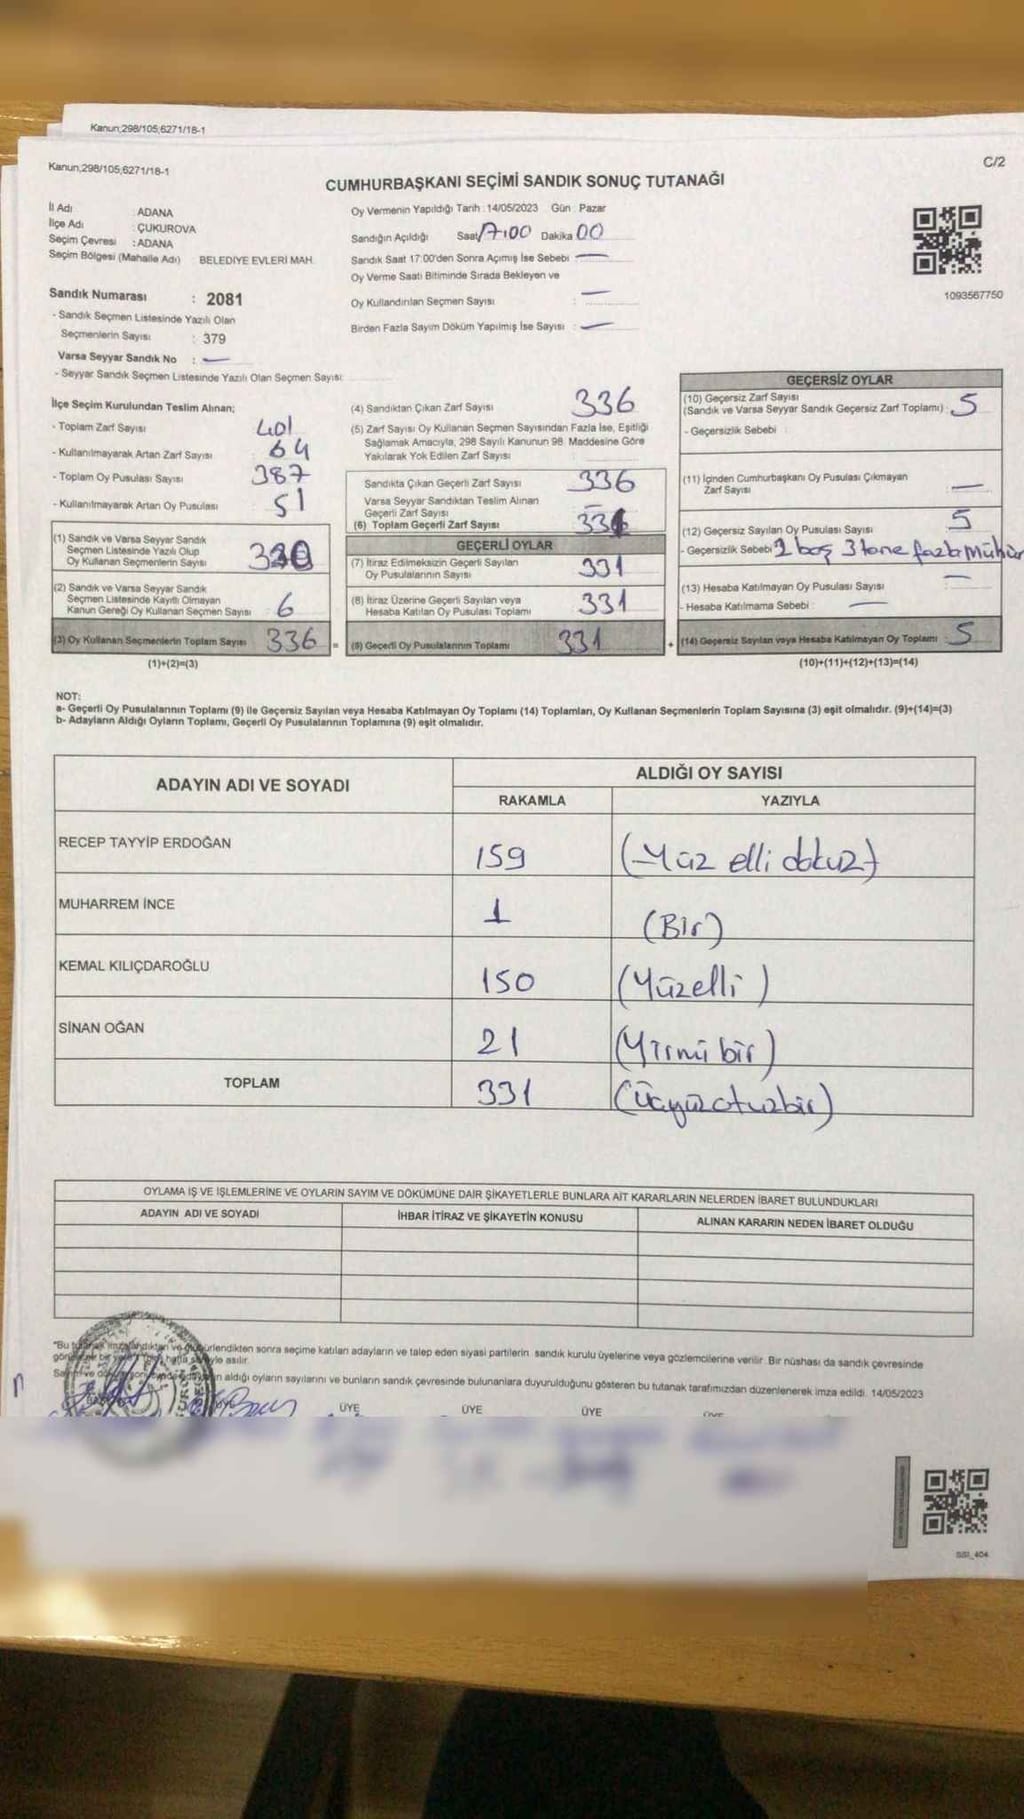 Kanun;298/105;6271/18-1
Kanun;298/105;6271/18-1
C/2
CUMHURBAŞKANI SEÇİMİ SANDIK SONUÇ TUTANAĞI
İl Adı : ADANA
İlçe Adı : ÇUKUROVA
Seçim Çevresi : ADANA
Seçim Bölgesi (Mahalle Adı) BELEDİYE EVLERİ MAH.
Oy Vermenin Yapıldığı Tarih : 14/05/2023 Gün : Pazar
Sandığın Açıldığı Saat 17:00 Dakika 00
Sandık Saat 17:00'den Sonra Açımış İse Sebebi —
Oy Verme Saati Bitiminde Sırada Bekleyen ve
Oy Kullandırılan Seçmen Sayısı : —
Birden Fazla Sayım Döküm Yapılmış İse Sayısı : —
1093567750
Sandık Numarası : 2081
- Sandık Seçmen Listesinde Yazılı Olan
Seçmenlerin Sayısı : 379
Varsa Seyyar Sandık No : —
- Seyyar Sandık Seçmen Listesinde Yazılı Olan Seçmen Sayısı:
İlçe Seçim Kurulundan Teslim Alınan;
- Toplam Zarf Sayısı 401
- Kullanılmayarak Artan Zarf Sayısı 64
- Toplam Oy Pusulası Sayısı 387
- Kullanılmayarak Artan Oy Pusulası 51
(1) Sandık ve Varsa Seyyar Sandık
Seçmen Listesinde Yazılı Olup
Oy Kullanan Seçmenlerin Sayısı
(2) Sandık ve Varsa Seyyar Sandık
Seçmen Listesinde Kayıtlı Olmayan
Kanun Gereği Oy Kullanan Seçmen Sayısı 6
(3) Oy Kullanan Seçmenlerin Toplam Sayısı 336 =
(1)+(2)=(3)
(4) Sandıktan Çıkan Zarf Sayısı 336
(5) Zarf Sayısı Oy Kullanan Seçmen Sayısından Fazla İse, Eşitliği
Sağlamak Amacıyla, 298 Sayılı Kanunun 98. Maddesine Göre
Yakılarak Yok Edilen Zarf Sayısı :
Sandıkta Çıkan Geçerli Zarf Sayısı 336
Varsa Seyyar Sandıktan Teslim Alınan
Geçerli Zarf Sayısı —
(6) Toplam Geçerli Zarf Sayısı
GEÇERLİ OYLAR
(7) İtiraz Edilmeksizin Geçerli Sayılan
Oy Pusulalarının Sayısı 331
(8) İtiraz Üzerine Geçerli Sayılan veya
Hesaba Katılan Oy Pusulası Toplamı 331
(9) Geçerli Oy Pusulalarının Toplamı 331 +
GEÇERSİZ OYLAR
(10) Geçersiz Zarf Sayısı
(Sandık ve Varsa Seyyar Sandık Geçersiz Zarf Toplamı) : 5
- Geçersizlik Sebebi :
(11) İçinden Cumhurbaşkanı Oy Pusulası Çıkmayan
Zarf Sayısı —
(12) Geçersiz Sayılan Oy Pusulası Sayısı 5
- Geçersizlik Sebebi 2 boş 3 tane fazla Mühür
(13) Hesaba Katılmayan Oy Pusulası Sayısı : —
- Hesaba Katılmama Sebebi : —
(14) Geçersiz Sayılan veya Hesaba Katılmayan Oy Toplamı : 5
(10)+(11)+(12)+(13)=(14)
NOT:
a- Geçerli Oy Pusulalarının Toplamı (9) ile Geçersiz Sayılan veya Hesaba Katılmayan Oy Toplamı (14) Toplamları, Oy Kullanan Seçmenlerin Toplam Sayısına (3) eşit olmalıdır. (9)+(14)=(3)
b- Adayların Aldığı Oyların Toplamı, Geçerli Oy Pusulalarının Toplamına (9) eşit olmalıdır.
ADAYIN ADI VE SOYADI
ALDIĞI OY SAYISI
RAKAMLA YAZIYLA
RECEP TAYYİP ERDOĞAN 159 (Yüz elli dokuz)
MUHARREM İNCE 1 (Bir)
KEMAL KILIÇDAROĞLU 150 (Yüzelli)
SİNAN OĞAN 21 (Yirmi bir)
TOPLAM 331 (Üçyüzotuzbir)
OYLAMA İŞ VE İŞLEMLERİNE VE OYLARIN SAYIM VE DÖKÜMÜNE DAİR ŞİKAYETLERLE BUNLARA AİT KARARLARIN NELERDEN İBARET BULUNDUKLARI
ADAYIN ADI VE SOYADI İHBAR İTİRAZ VE ŞİKAYETİN KONUSU ALINAN KARARIN NEDEN İBARET OLDUĞU
"Bu sonra seçime katılan adayların ve talep eden siyasi partilerin sandık kurulu üyelerine veya gözlemcilerine verilir. Bir nüshası da sandık çevresinde
asılır.
aldığı oyların sayılarını ve bunların sandık çevresinde bulunanlara duyurulduğunu gösteren bu tutanak tarafımızdan düzenlenerek imza edildi. 14/05/2023
ÜYE ÜYE ÜYE ÜYE
SSI_404